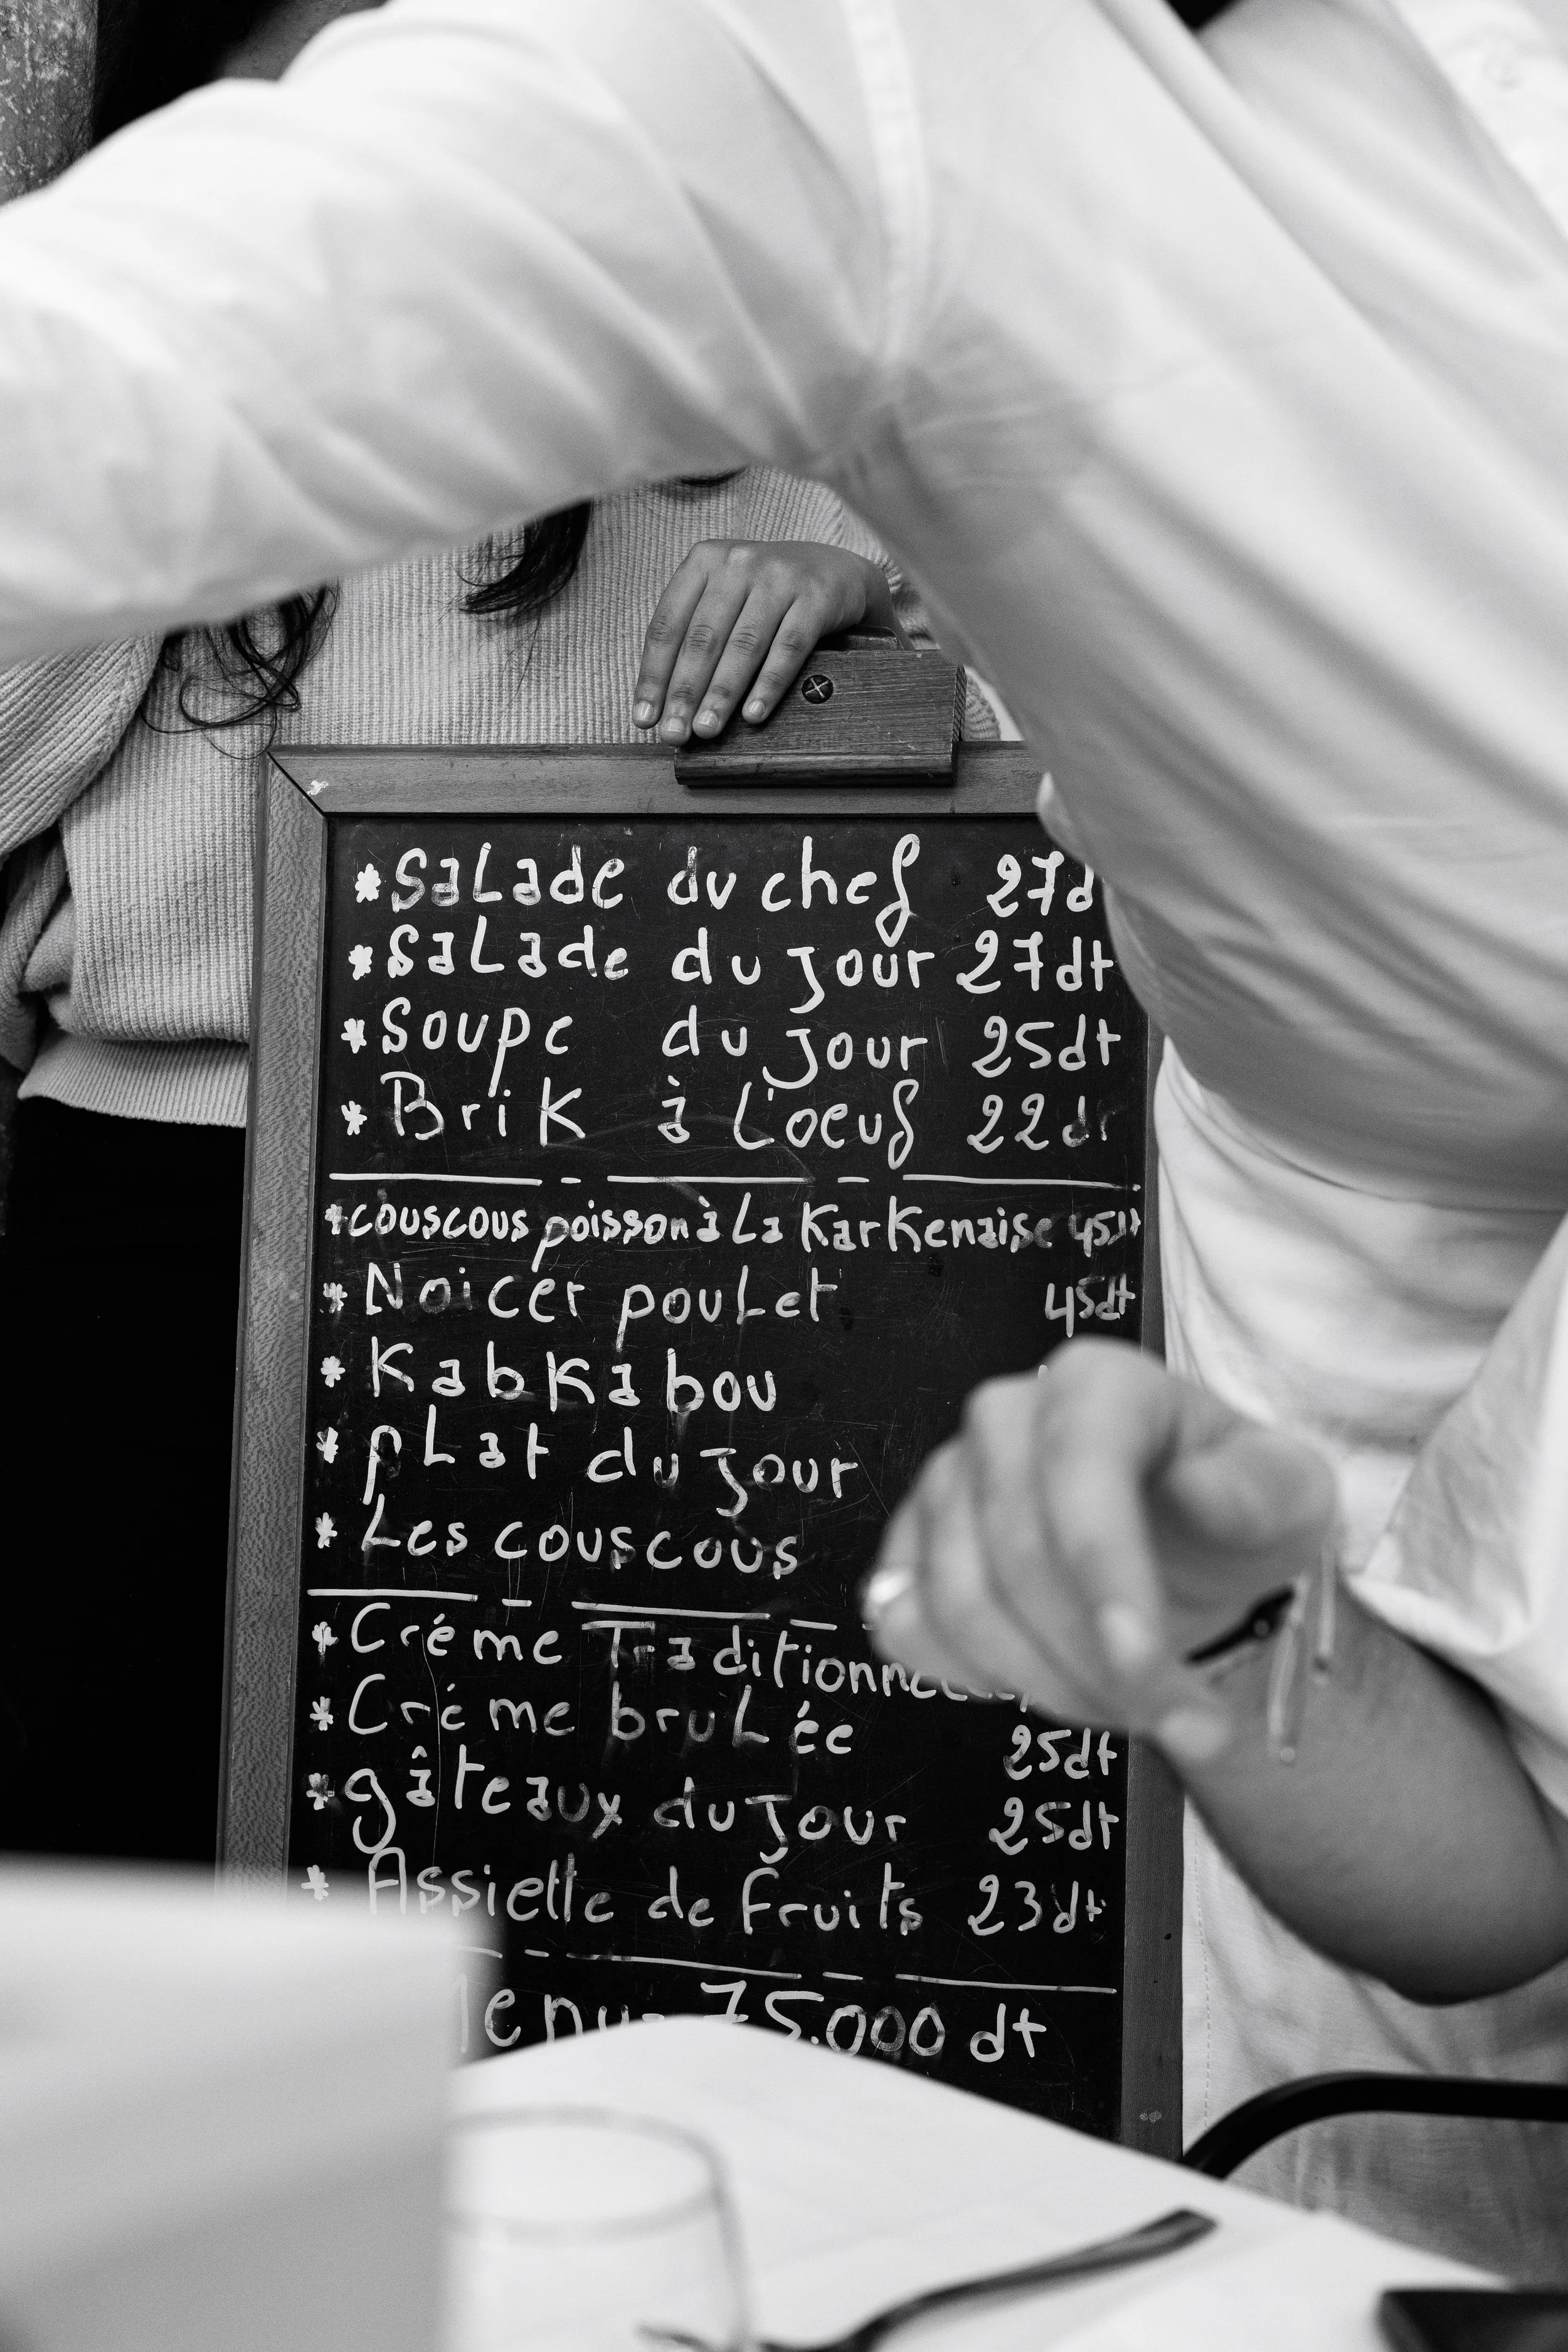 * Salade du chef 27d
* Salade du jour 27dt
* Soupe du jour 25dt
* Brik à L'oeuf 22dt
* couscous poisson à La Karkenaise 45dt
* Noicer pouLet 45dt
* Kabkabou
* pLat du jour
* Les couscous
* Créme Traditionnelle
* Créme bruLée 25dt
* gâteaux du jour 25dt
* Assiette de fruits 23dt
enu 75.000 dt